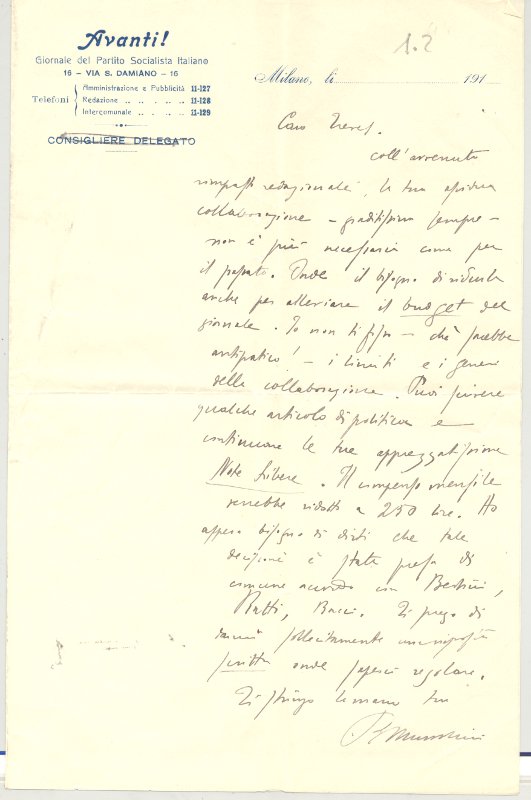 Avanti!
Giornale del Partito Socialista Italiano
16 - VIA S. DAMIANO - 16
Telefoni
Amministrazione e Pubblicità 11-127
Redazione .. .. .. .. 11-128
Intercomunale .. .. .. 11-129
CONSIGLIERE DELEGATO
1.2
Milano, li 191
Caro Treves.
coll'avvenuto
rimpasto redazionale, la tua assidua
collaborazione - graditissima sempre -
non è più necessaria come per
il passato. Onde il bisogno di ridurla
anche per alleviare il budget del
giornale. Io non ti fisso - chè sarebbe
antipatico! - i limiti e i generi
della collaborazione. Puoi scrivere
qualche articolo di politica e
continuare le tue apprezzatissime
Note Libere. Il compenso mensile
verrebbe ridotto a 250 lire. Ho
appena bisogno di dirti che tale
decisione è stata presa di
comune accordo con
Ratti, Bacci. Ti prego di
darmi sollecitamente una risposta
scritta onde sapersi regolare.
Ti stringo la mano tuo
B Mussolini